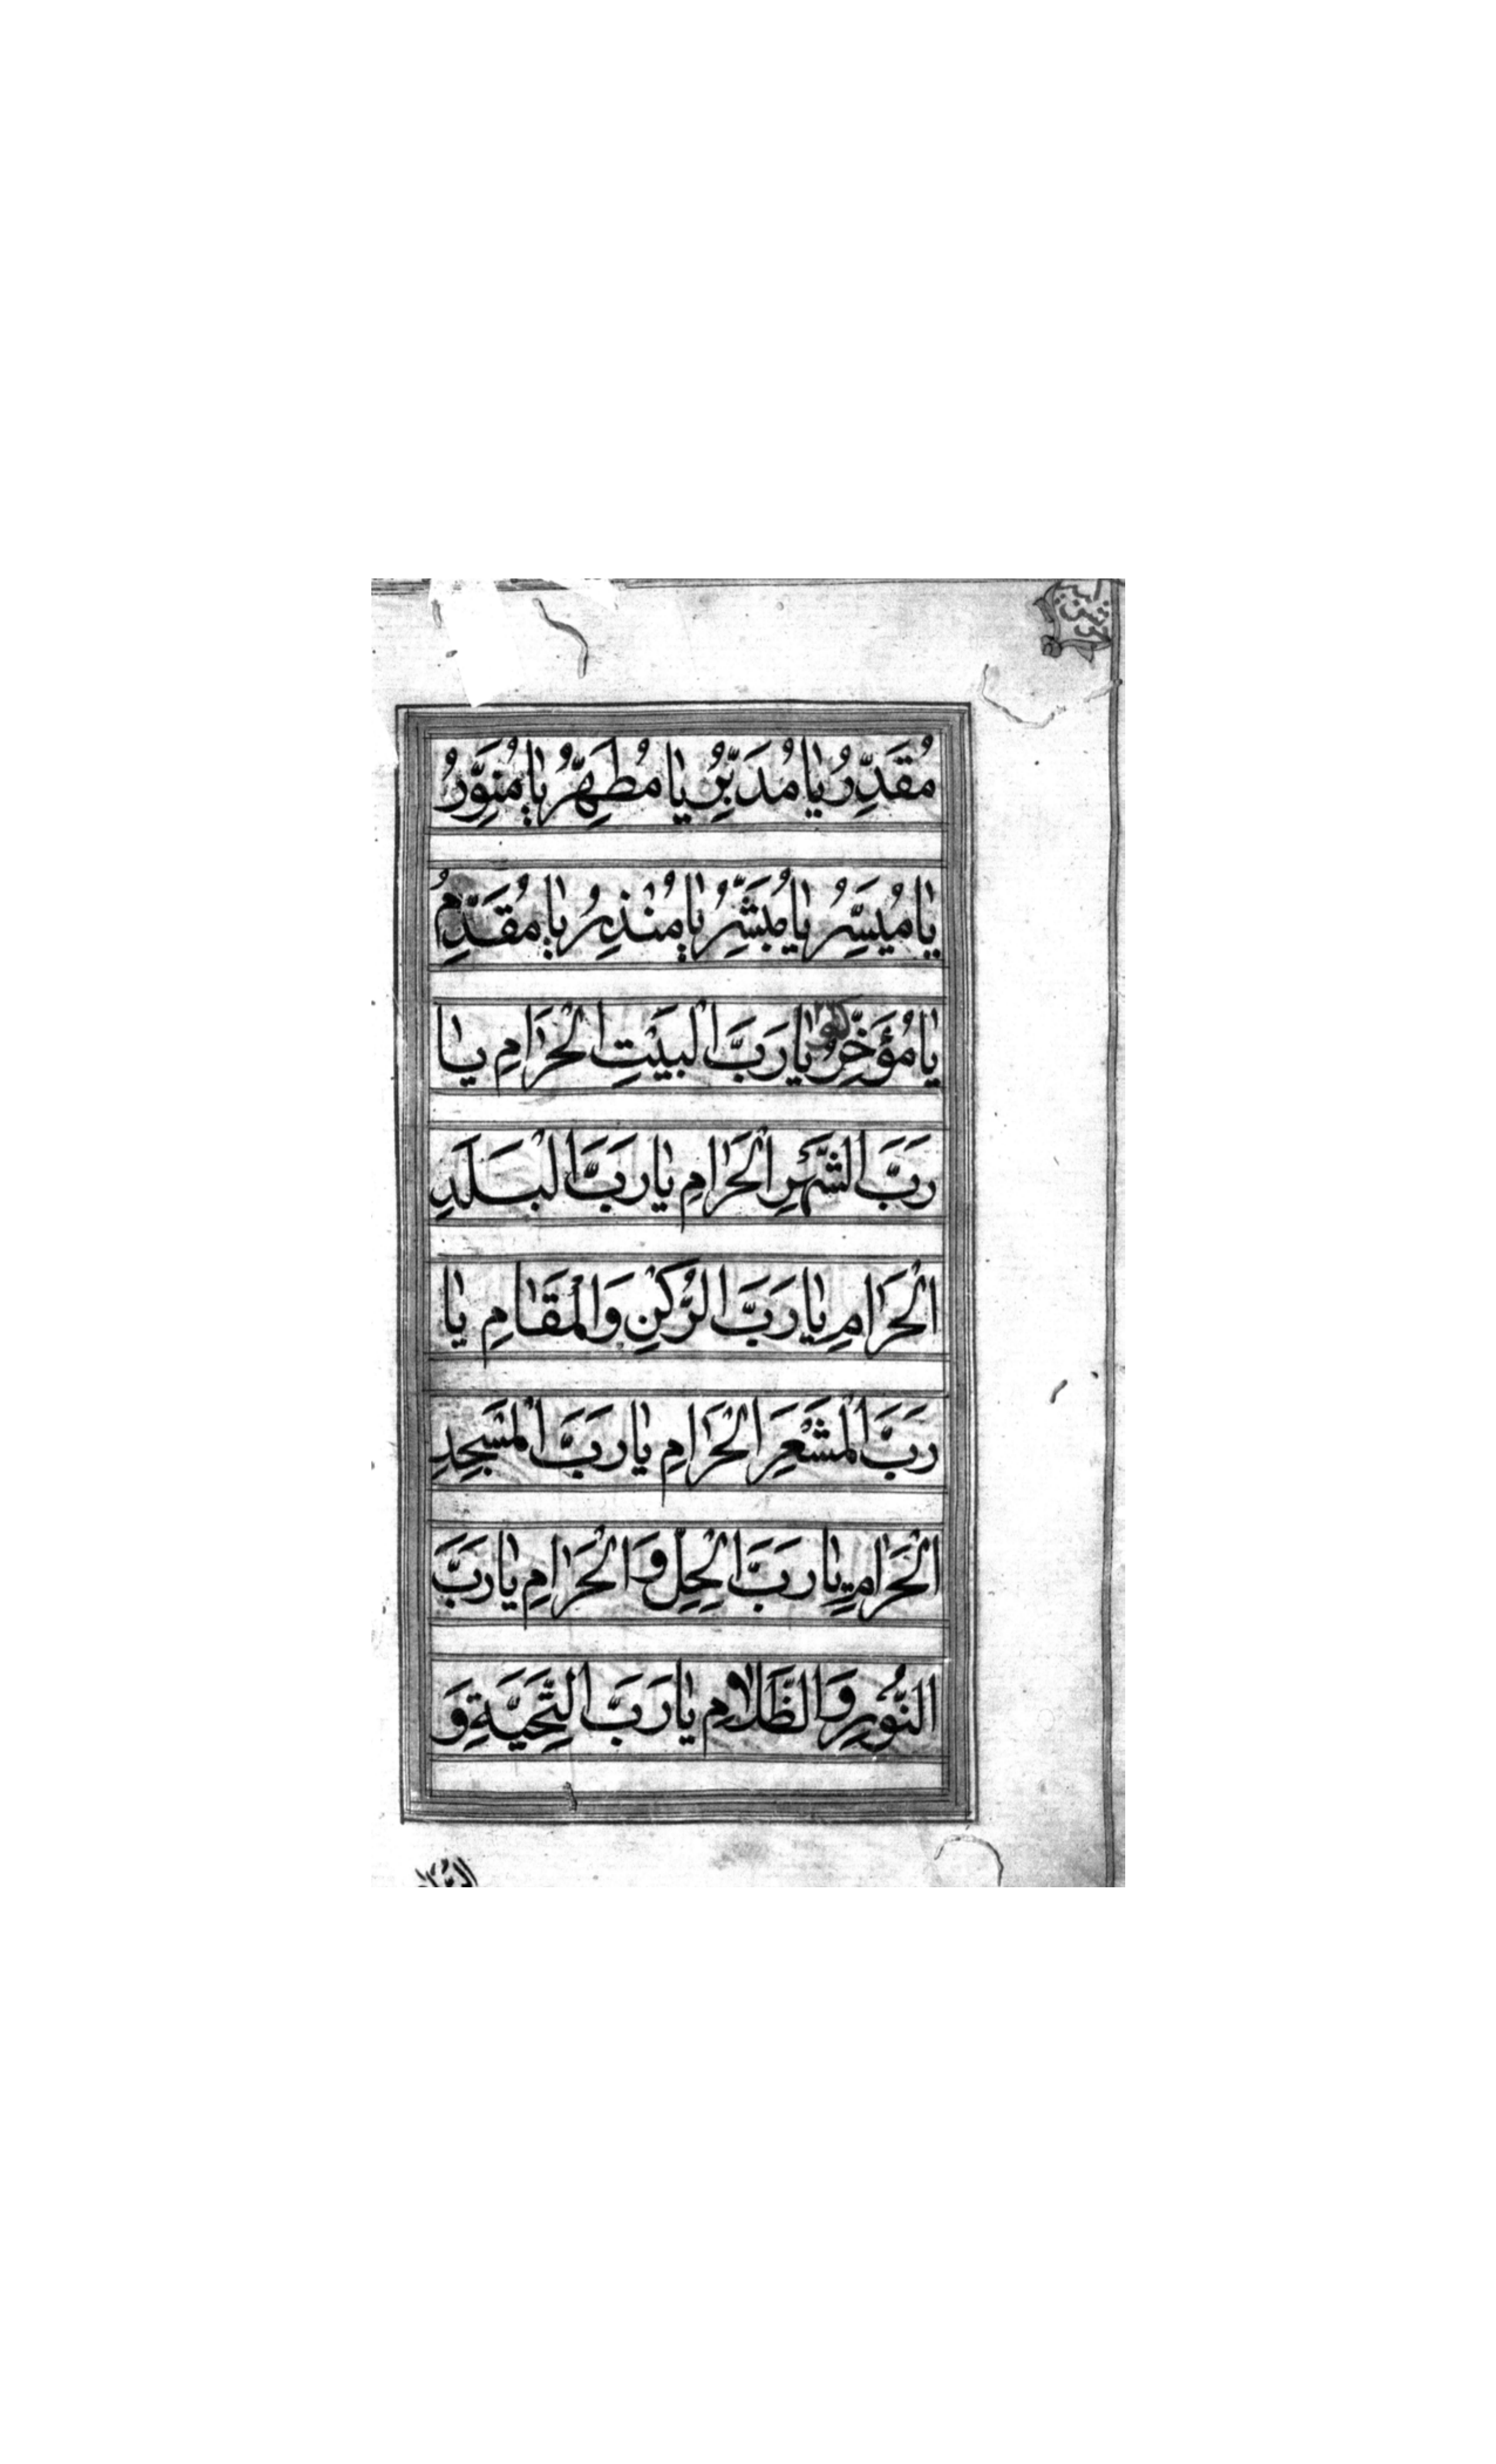 مُقَدِّرُ يَا مُدَبِّرُ يَا مُطَهِّرُ يَا مُنَوِّرُ
يَا مُيَسِّرُ يَا مُبَشِّرُ يَا مُنْذِرُ يَا مُقَدِّمُ
يَا مُؤَخِّرُ يَا رَبَّ الْبَيْتِ الْحَرَامِ يَا
رَبَّ الشَّهْرِ الْحَرَامِ يَا رَبَّ الْبَلَدِ
الْحَرَامِ يَا رَبَّ الرُّكْنِ وَالْمَقَامِ يَا
رَبَّ الْمَشْعَرِ الْحَرَامِ يَا رَبَّ الْمَسْجِدِ
الْحَرَامِ يَا رَبَّ الْحِلِّ وَالْحَرَامِ يَا رَبَّ
النُّورِ وَالظَّلَامِ يَا رَبَّ التَّحِيَّةِ وَ